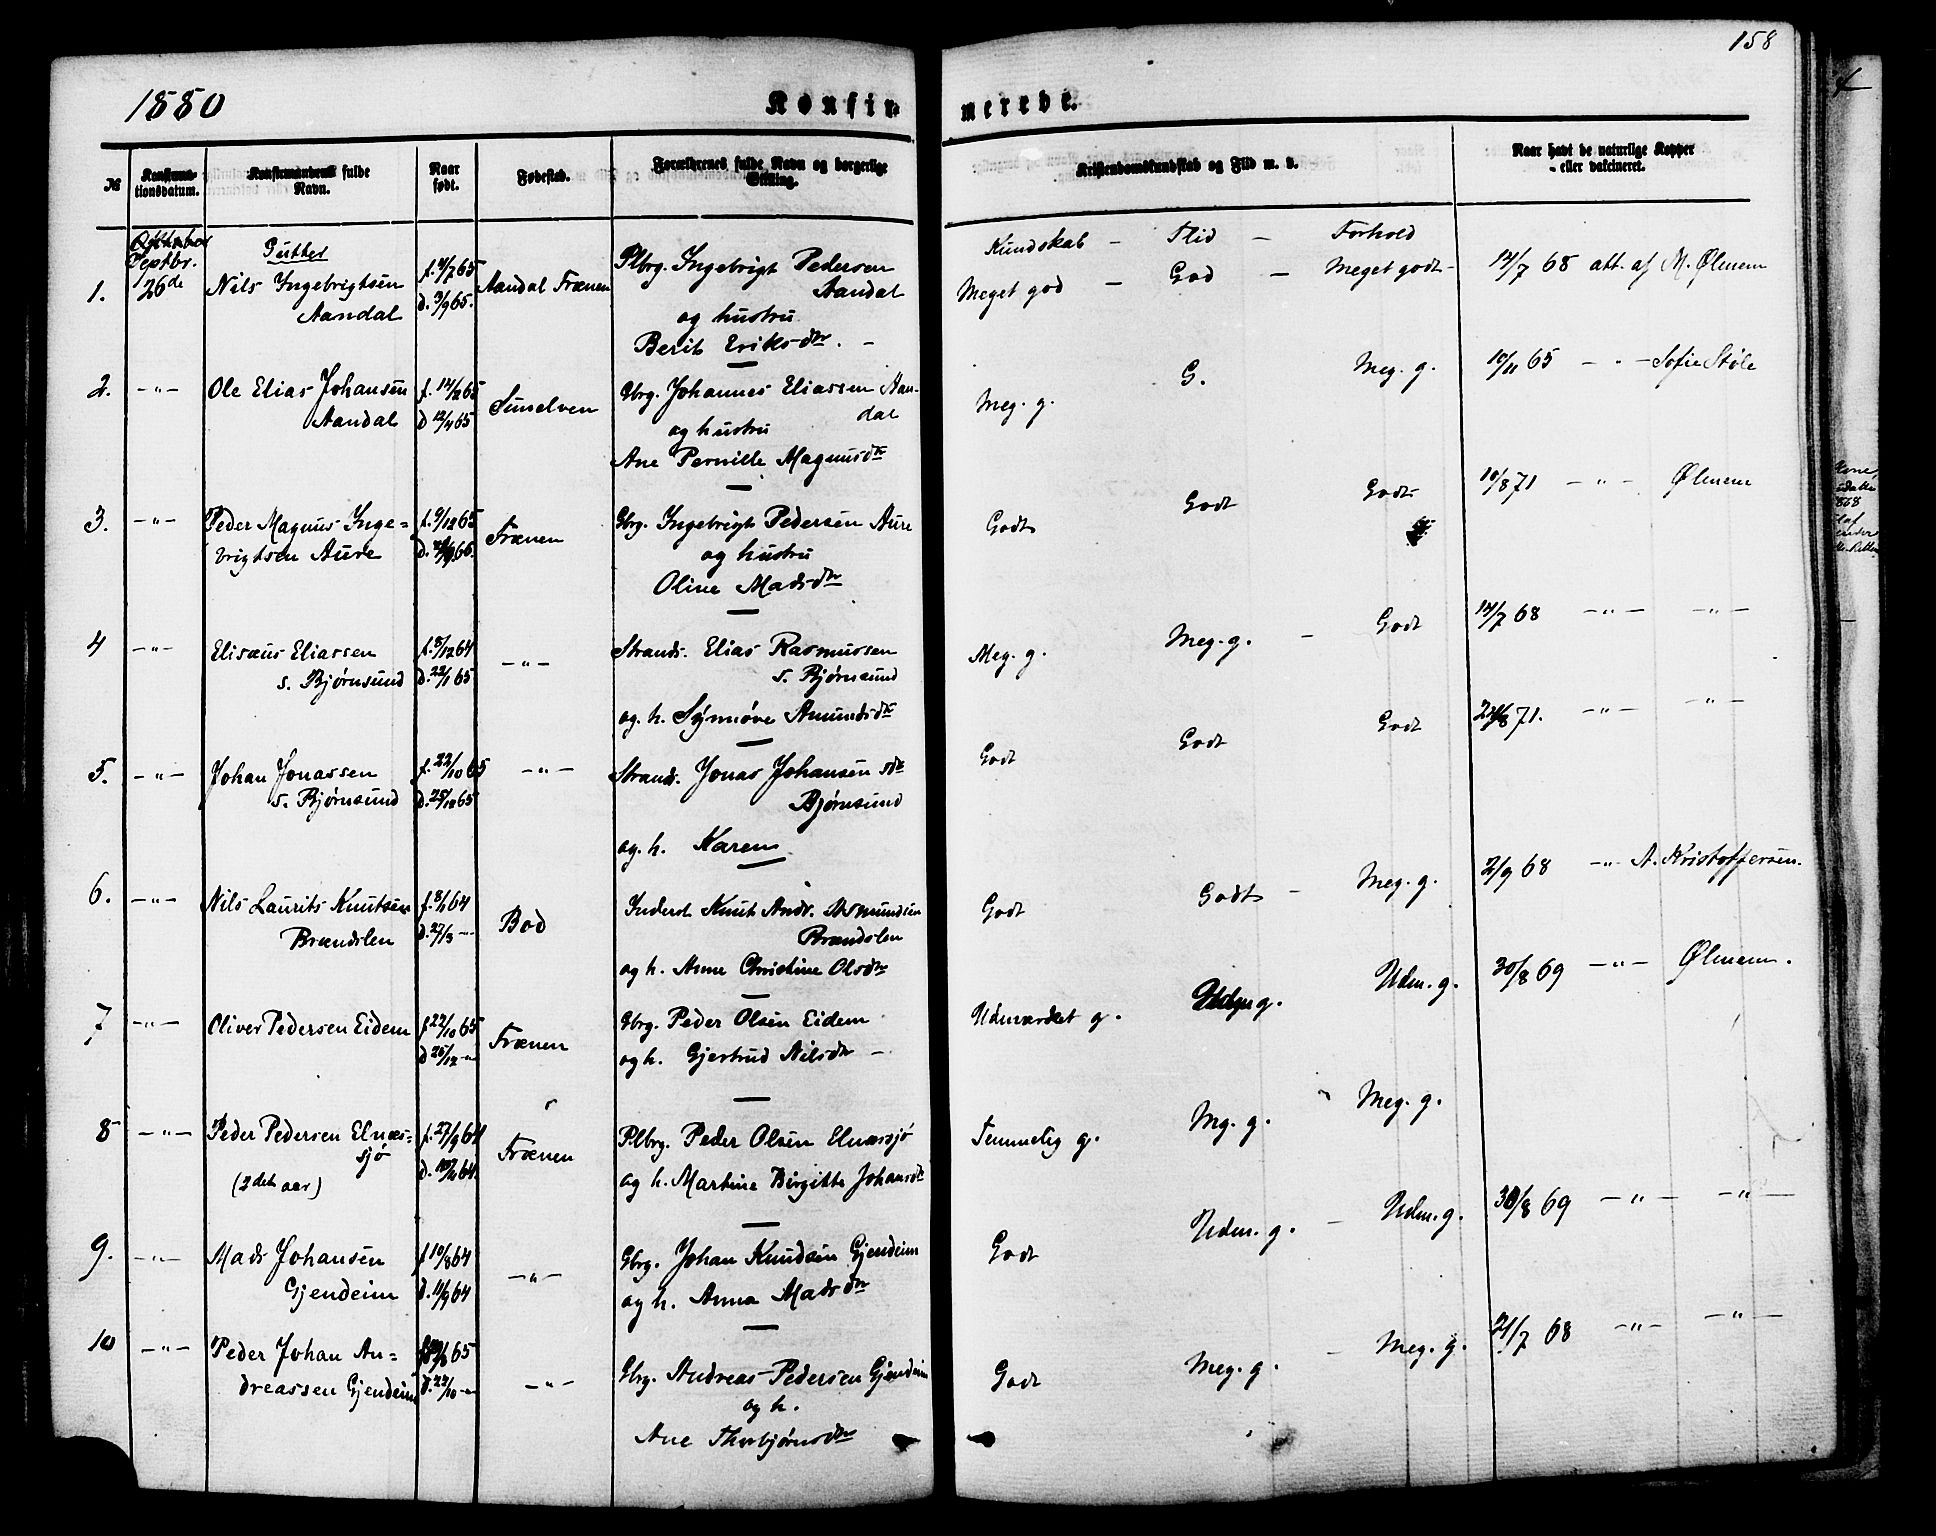 158
1880
Konfir
merede.
№
Konfirma-
tionsdatum.
Konfirmandens fulde
Navn.
Naar
født.
Fødested.
Forældrenes fulde Navn og borgerlige
Stilling.
Kristendomskundskab og Flid m. v.
Naar havt de naturlige Kopper
eller vakcineret.
Septbr.
26de
Gutter
Kundskab - Flid - Forhold
1. Nils Ingebrigtsen
Aandal
f. 4/7 65
d. 3/9 65.
Aandal Frænen
Plbrg. Ingebrigt Pedersen
Aandal
og hustru
Berit Eriksdtr. -
Meget god - God - Meget godt -
14/7 68 att. af M. Ølmem
2. -"- Ole Elias Johansen
Aandal
f. 14/2 65
d 12/4 65
Sunelven
Gbrg. Johannes Eliassen Aan-
dal
og hustru
Ane Pernille Magnusdtr
Meg. g. G. Meg. g.
10/11 65 - " - Sofie Støle
3. -"- Peder Magnus Inge-
brigtsen Aure
f. 9/12 65
Frænen
Gbrg. Ingebrigt Pedersen Aure
og hustru
Oline Madsdtr
Godt Godt Godt
10/8 71 -"- Ølmem
4 -"- Elisæus Eliassen
s. Bjørnsund
f. 8/12 64
d. 22/1 65
-"-
Strands. Elias Rasmussen
s. Bjørnsund
og. h. Synnøve Amundsdtr
Meg. g. Meg. g. - Godt
14/7 68 -"- -"-
5. -"- Johan Jonassen
s. Bjørnsund
f. 22/10 65
d. 25/12 65
-"-
Strands. Jonas Johansen
Bjørnsund
og. h. Karen
Godt Godt Godt
/8 71. -"- -"-
6. -"- Nils Laurits Knutsen
Brændslen
f. 8/1 64
d. 27/3 -
Bod
Inderst Knut Andr. Asmundsen
Brændslen
og h. Anne Christine Olsdtr
Godt Godt - Meg. g.
2/9 68 -"- A. Kristoffersen.
7 -"- Oliver Pedersen Eidem
f. 22/10 65
d 26/12 -"-
Frænen
Gbrg. Peder Olsen Eidem
og h. Gjertrud Nilsdtr -
Udmærket g. g. Udm. g.
30/8 69 -"- Ølmem.
8 -"- Peder Pedersen Elnæs-
sjø
(2det aar)
f. 27/9 64
Frænen
Plbrg. Peder Olsen Elnæssjø
og h. Martine Birgitte Johansdtr
Temmelig g. Mg. g. Meg. g.
9. -"- Mads Johansen
Gjendeim
f 10/8 64
d. 11/9 64
-"-
Gbrg. Johan Knudsen Gjendeim
og h. Anna Madsdtr
Godt Udm. g. - Udm. g.
30/8 69 -"- -"-
10 -"- Peder Johan An-
dreassen Gjendeim
65
d. 22/10 -"-
-"-
Gbrg. Andreas Pedersen Gjendeim
og h.
Ane Thorbjørnsdtr
Godt Meg. g. - Meg. g.
21/7 68 -"- -"-